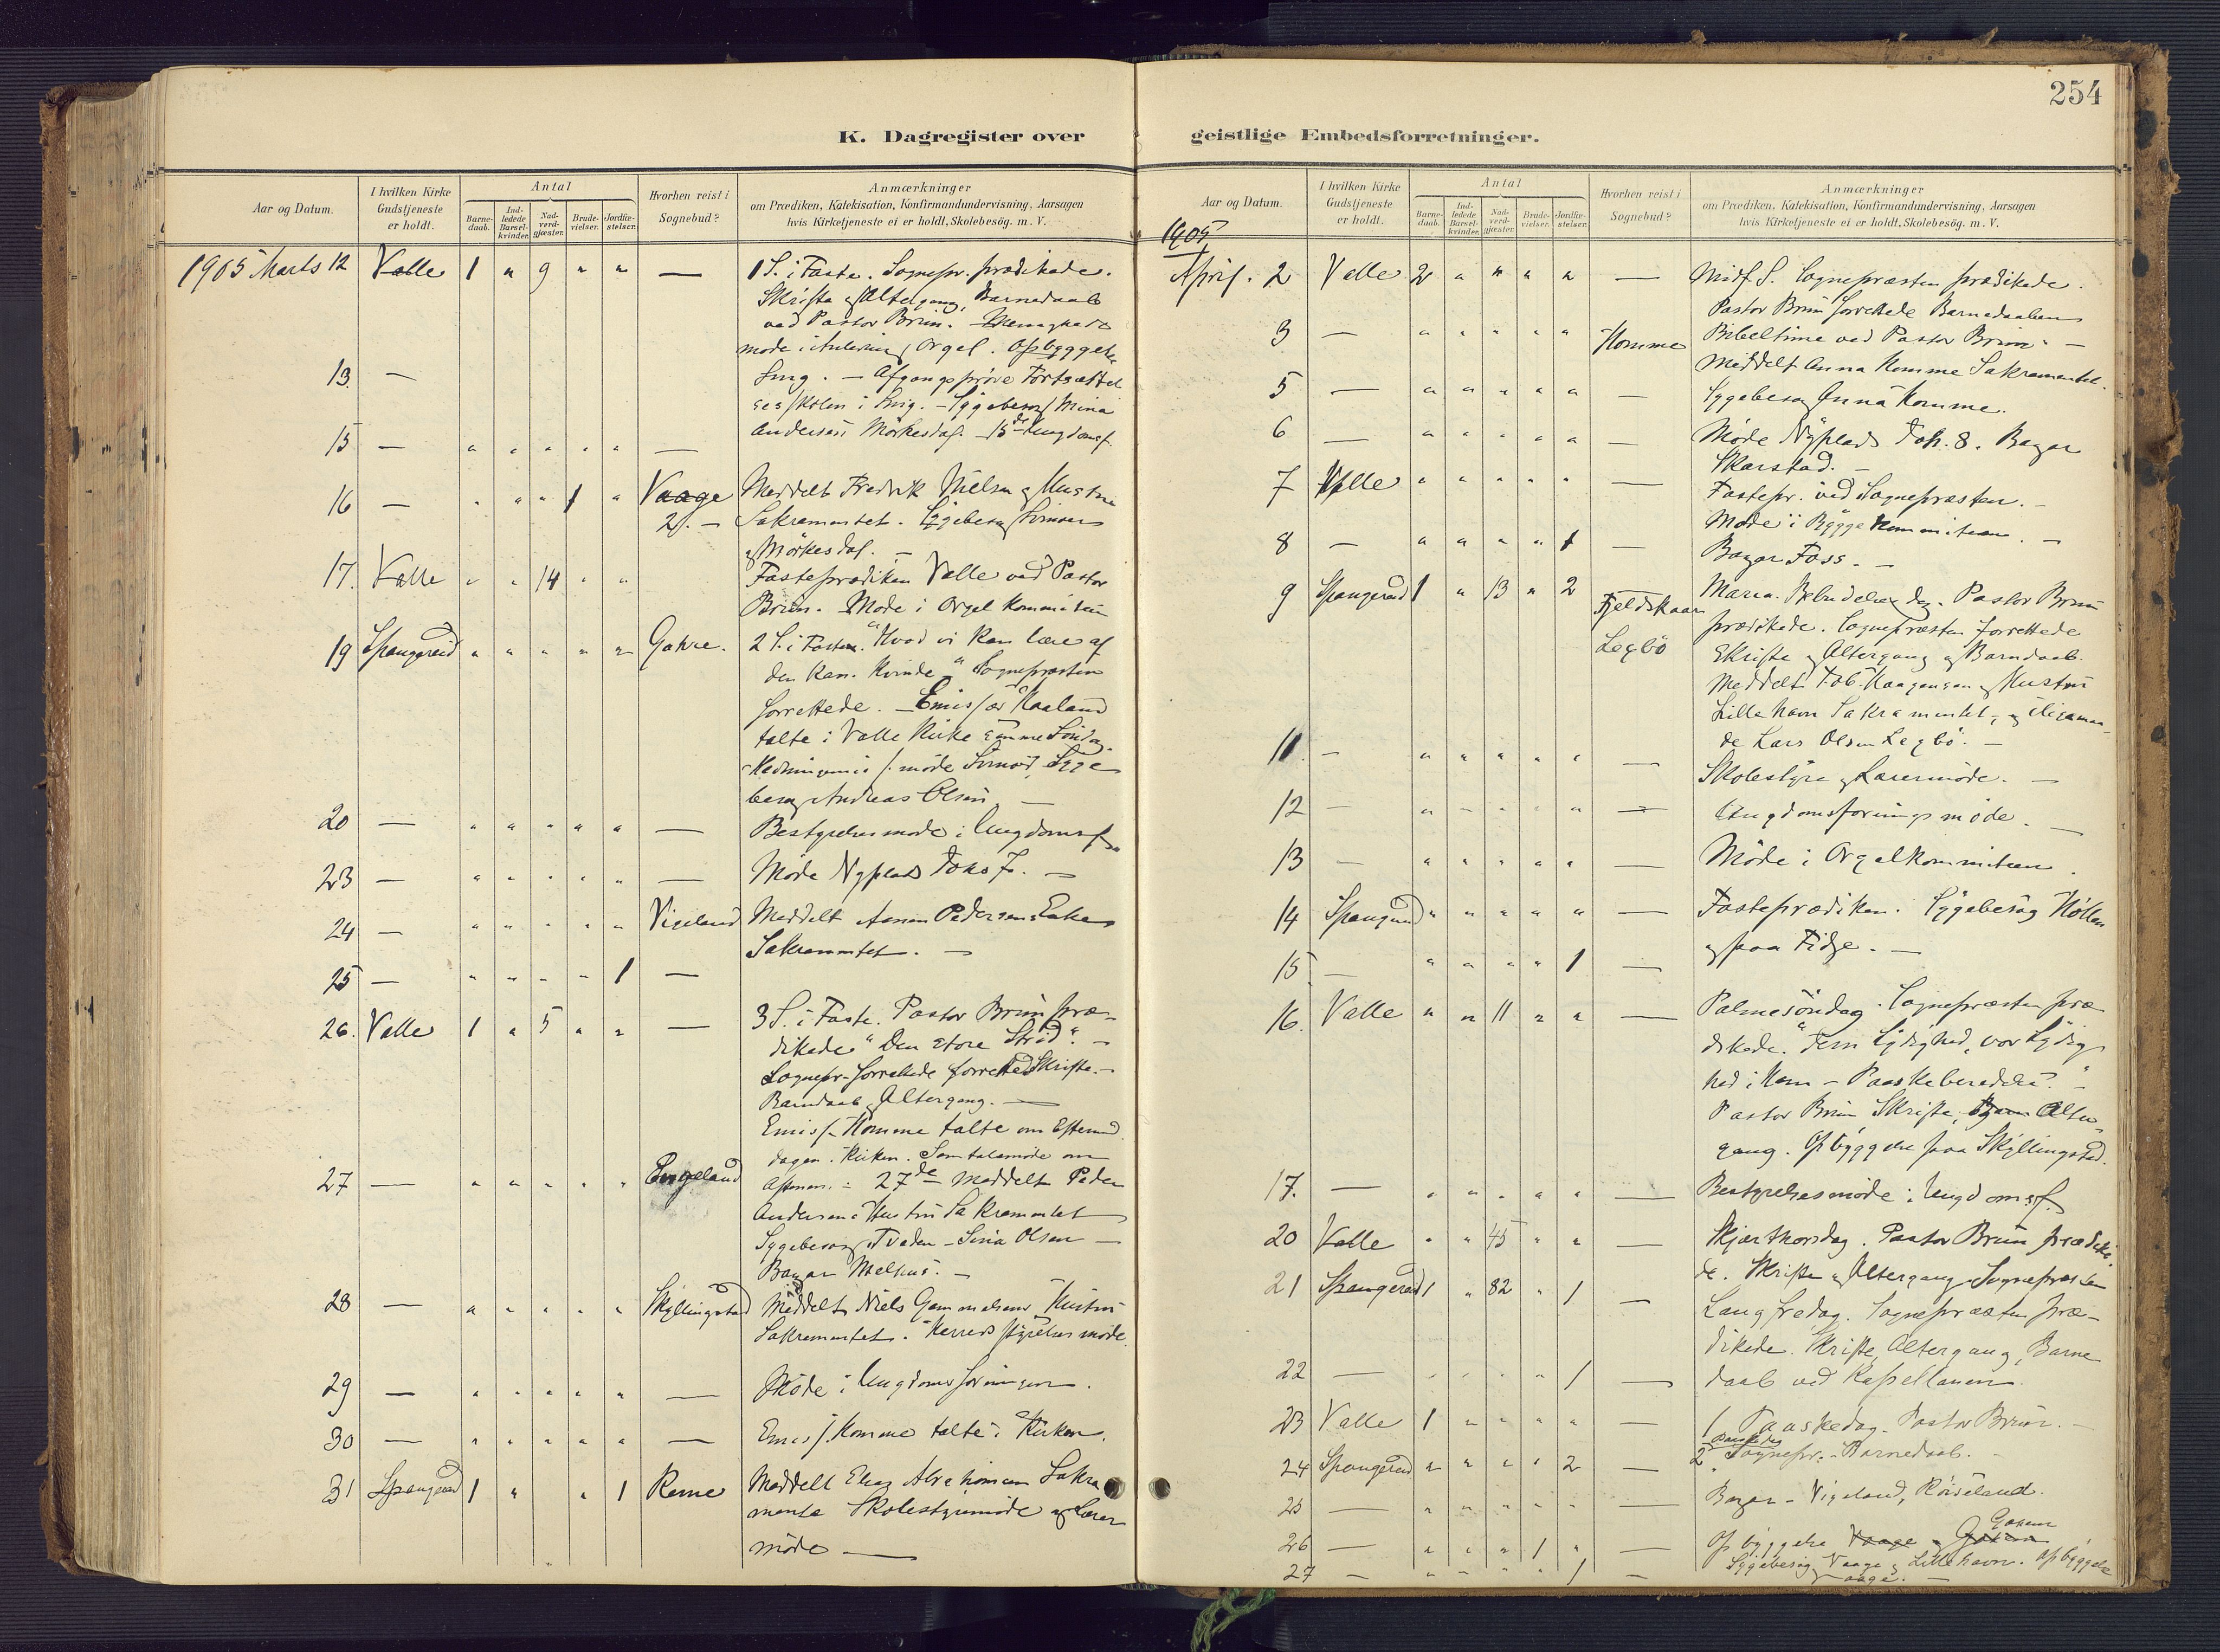 254
K. Dagregister over
geistlige Embedsforretninger.
Aar og Datum.
I hvilken Kirke Gudstjeneste er holdt.
Antal
Barne-daab.
Ind-ledede Barsel-kvinder.
Nad-verd-gjæster.
Brude-vielser.
Jordfæ-stelser.
Hvorhen reist i Sognebud?
Anmærkninger
om Prædiken, Katekisation, Konfirmandundervisning, Aarsagen
hvis Kirketjeneste ei er holdt, Skolebesög. m. V.
1905 Marts 12 Valle 1 " 9 " " — 1 S. i Faste. Sognepr. prædikede.
Skrifte og Altergang, Barnedaab
ved Pastor Brun. Menigheds
møde i Orgel. Opbyggelse
13. — — Afgangsprøve Fortsættel
sesskolen i — Sygebesøg Mina
Andersen Mörkesdal. — 15de Ungdomsf.
15 — " " " " " —
16 — " " " 1 " Vaage Meddelt Fredrik Nielsen og Hustru
2. — Sakramentet. Sygebesøg
og Mörkesdal. —
17. Valle " " 14 " " Fasteprædiken Valle ved Pastor
Brun. Møde i Orgel Kommiteen
19 Spangereid " " " " " Gahre. 2 S. i Fasten. "Hvad vi kan lære af
den kan. Kvinde" Sognepræsten
forrettede. — Emissær Haaland
talte i Valle Kirke samme Söndag.
møde Syge
besøg Andreas Olsen —
20 — " " " " " — Bestyrelsesmøde i Ungdomsf.
23 — " " " " " — Møde Nyplads —
24 — " " " " " Vigeland Meddelt Pedersens Enke
Sakramentet. —
25 — " " " " 1 —
26. Valle 1 " 5 " " — 3 S. i Faste. Pastor Brun præ-
dikede "Den store Strid". —
Sognepr. forrettede forrettede Skrifte. —
Barndaab, Altergang. —
Emiss. Homme talte om Eftermid
dagen i Kirken. Samtalemøde om
27 — " " " " " Engeland Aftenen. — 27de Meddelt Peder
Andersen Hustru Sakramentet
Sygebesøg — Sina Olsen —
Bazar Melhus. —
28 — " " " " " Skyllingstad Meddelt Niels Gammelsens Hustru
Sakramentet. Herredsstyrelsesmøde.
29 — " " " " " — Møde i Ungdomsforeningen.
30 — " " " " " — Emiss. Homme talte i Kirken.
31 Spangereid 1 " " 1 Rame Meddelt Elias Abrahamsen Sakra
mente Skolestyremøde og Lærer
møde —
Aar og Datum.
I hvilken Kirke Gudstjeneste er holdt.
Antal
Barne-daab.
Ind-ledede Barsel-kvinder.
Nad-verd-gjæster.
Brude-vielser.
Jordfæ-stelser.
Hvorhen reist i Sognebud?
Anmærkninger
om Prædiken, Katekisation, Konfirmandundervisning, Aarsagen
hvis Kirketjeneste ei er holdt, Skolebesög. m. V.
1905
April. 2 Valle 2 " " " " — Midf. S. Sognepræsten prædikede.
Pastor Brun forrettede Barnedaaben
3 — " " " " " Homme Bibeltime ved Pastor Brun. —
Meddelt Anna Homme Sakramentet.
5 — " " " " " — Sygebesøg Anna Homme.
6 — " " " " " — Møde Nyplads 8. Bazar
Skarstad. —
7 Valle " " " " — Fastepr. ved Sognepræsten. —
Møde i Byggekommiteen. —
8 — " " " " 1 — Bazar Foss. —
9 Spangereid 1 " 13 " 2 Fjeldskaar Maria Bebudelsesdag. Pastor Brun
prædikede. Sognepræsten forrettede
Legbö Skrifte og Altergang og Barndaab.
Meddelt Tob. Haagensen og Hustru
Lillehavn Sakramentet, og
de Lars Olsen Legbö. —
11. — " " " " " — Skolestyre og Lærermøde. —
12 — " " " " " — Ungdomsforeningsmøde. —
13 — " " " " " — Møde i Orgelkommiteen.
14 Spangereid " " " " " — Fasteprædiken. Sygebesøg Hölken
og paa Fidje. —
15 — " " " " 1 —
16. Valle " " 11 " " — Palmesöndag. Sognepræsten præ
dikede. Lydighed, vor Lydig
hed i Ham — Paaskeberedelse". —
Pastor Brun Skrifte, Alter
gang. Opbyggelse paa Skyllingstad.
17. — " " " " " — Bestyrelsesmøde i Ungdomsf.
20 Valle " " 45 " " — Skjærthorsdag. Pastor Brun prædike
de. Skrifte og Altergang Sognepræsten
21 Spangereid 1 " 82 " 1 — Langfredag. Sognepræsten præ-
dikede. Skrifte, Altergang, Barne
22 — " " " " 1 — daab ved Kapellanen.
23 Valle 1 " " " " — 1 Paaskedag. Pastor Brun. —
24 Spangereid " " " " 2 — 2 Paaskedag Sognepr. — Barnedaab. —
25 — " " " " " — Bazar — Vigeland, Röiseland.
26 — " " " 1 " — Opbyggelse Vaage Gahren
27 — " " " " 1 — Sygebesøg Vaage & Lillehavn. Opbyggelse
Vaage. —